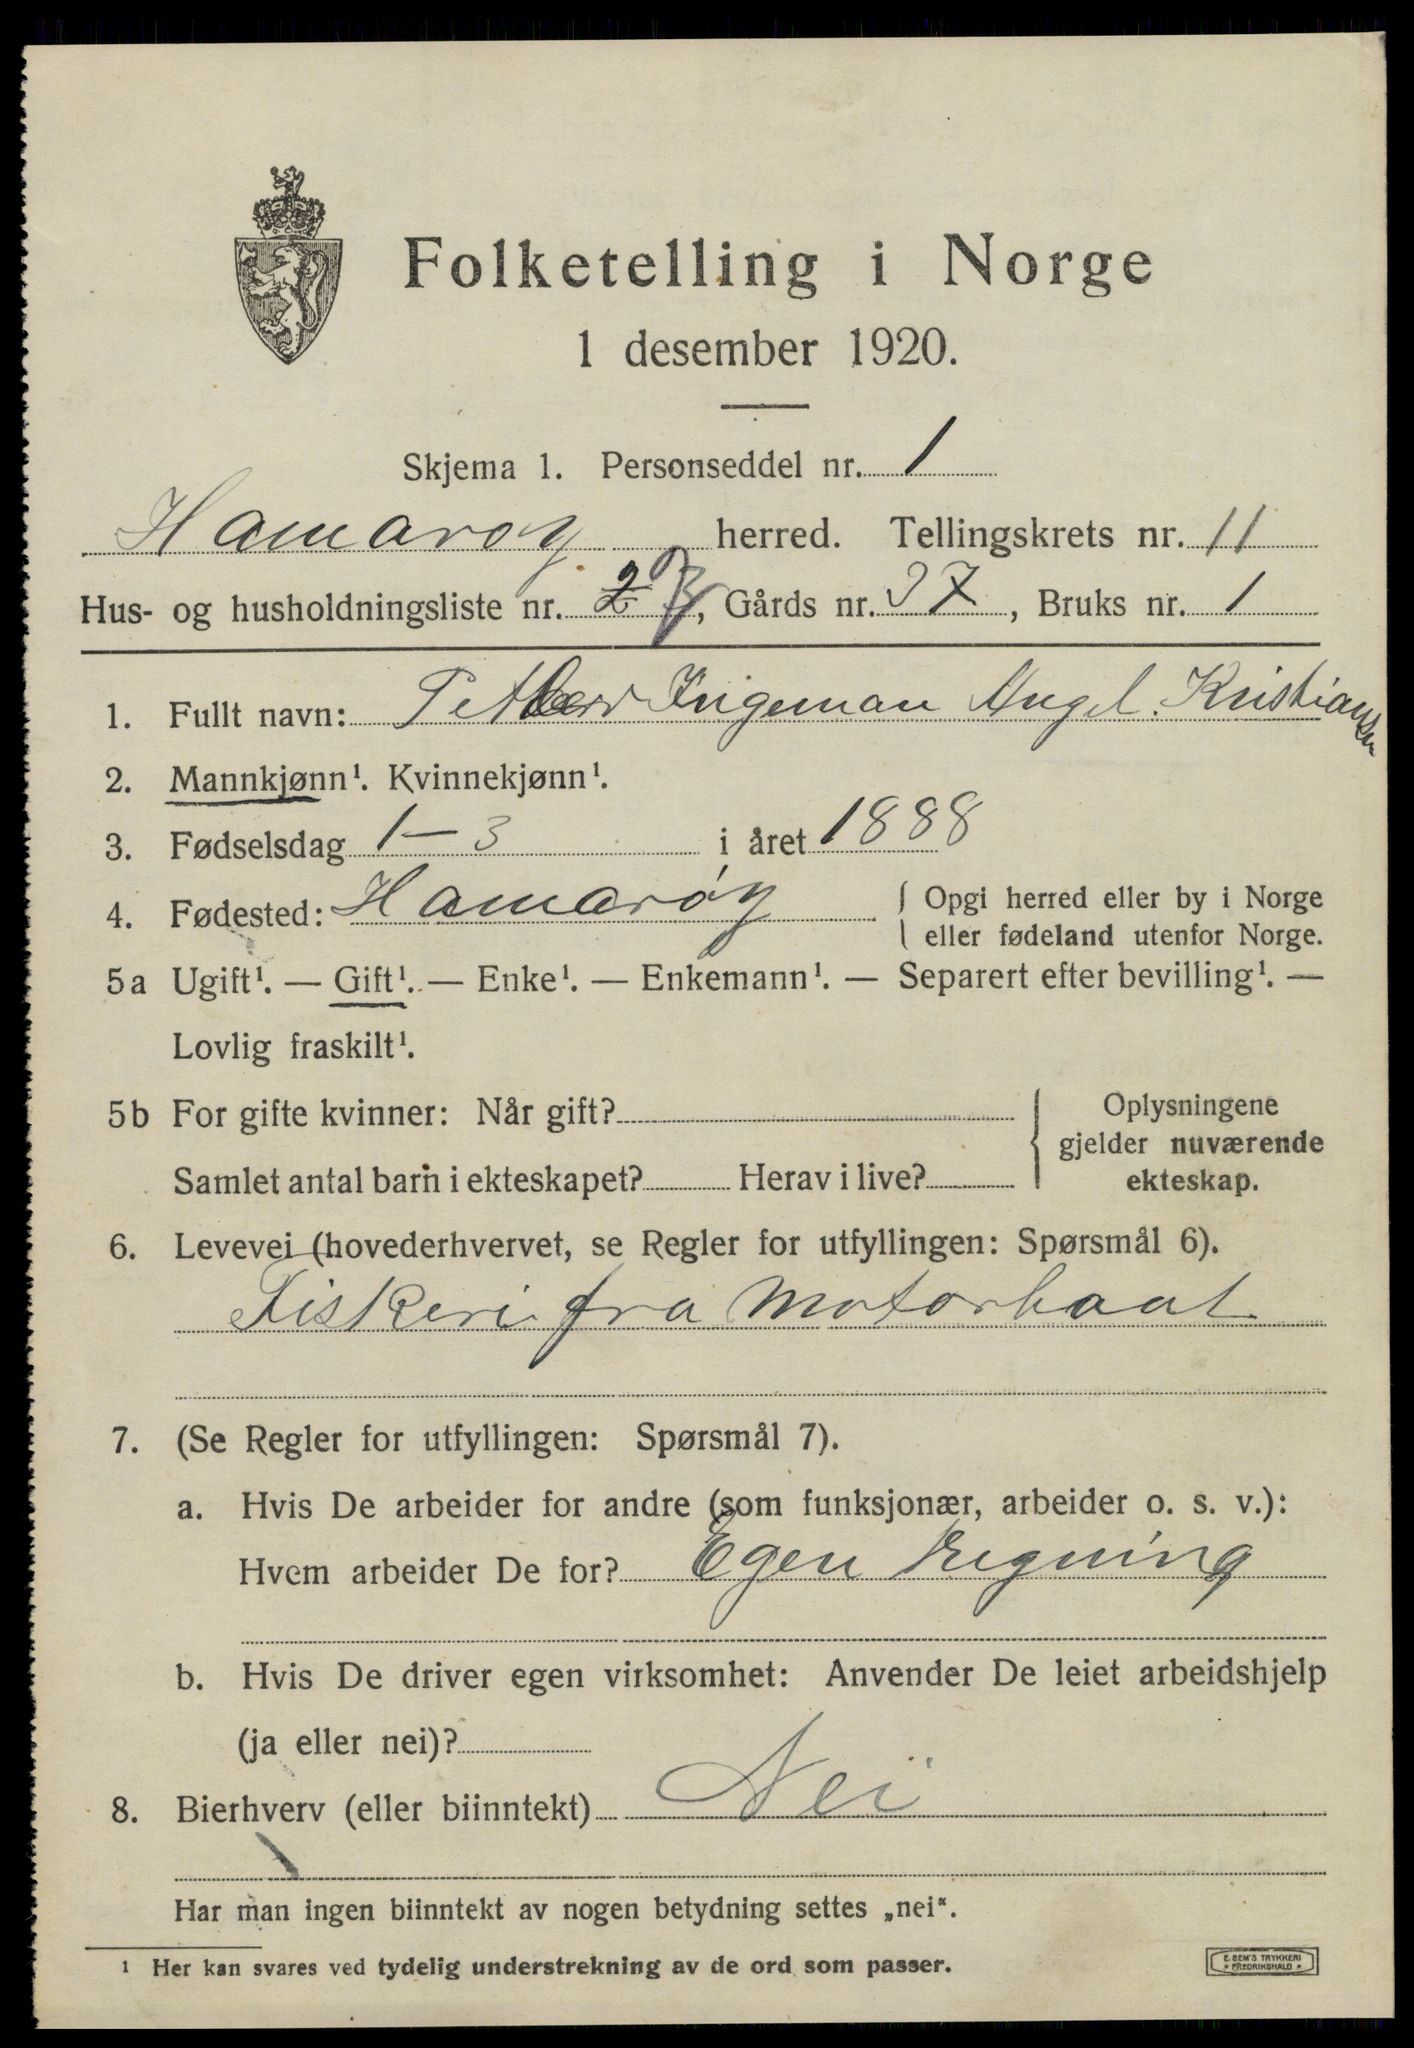 Folketelling i Norge
1 desember 1920.
Skjema 1. Personseddel nr. 1
Hamarøy herred. Tellingskrets nr. 11
Hus- og husholdningsliste nr. , Gårds nr. 37, Bruks nr. 1
1. Fullt navn: Petter Ingeman Angel. Kristiansen
2. Mannkjønn¹. Kvinnekjønn¹.
3. Fødselsdag 1-3 i året 1888
4. Fødested: Hamarøy { Opgi herred eller by i Norge
eller fødeland utenfor Norge.
5a Ugift¹. — Gift¹. — Enke¹. — Enkemann¹. — Separert efter bevilling¹. —
Lovlig fraskilt¹.
5b For gifte kvinner: Når gift? { Oplysningene
gjelder nuværende
Samlet antal barn i ekteskapet? Herav i live? ekteskap.
6. Levevei (hovederhvervet, se Regler for utfyllingen: Spørsmål 6).
Fiskeri fra Motorbaat
7. (Se Regler for utfyllingen: Spørsmål 7).
a. Hvis De arbeider for andre (som funksjonær, arbeider o. s. v.):
Hvem arbeider De for? Egen Regning
b. Hvis De driver egen virksomhet: Anvender De leiet arbeidshjelp
(ja eller nei)?
8. Bierhverv (eller biinntekt) Nei
Har man ingen biinntekt av nogen betydning settes „nei".
¹ Her kan svares ved tydelig understrekning av de ord som passer.
E. SEM'S TRYKKERI
* FREDRIKSHALD *